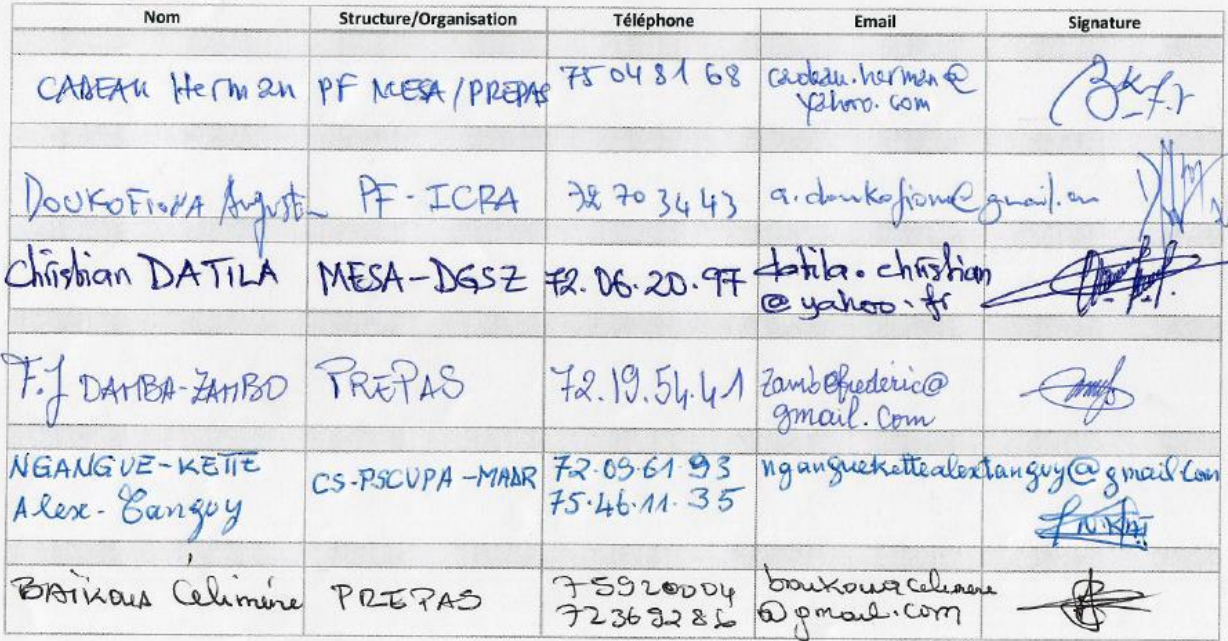 Nom Structure/Organisation Téléphone Email Signature
CADEAU Herman PF MESA/PREPAS 75 04 81 68 cadeau.herman@
yahoo.com
DOUKOFIONA Augustin PF-ICRA 72 70 34 43 a.doukofiona@gmail.com
Christian DATILA MESA-DGSZ 72.06.20.97 datila.christian
@yahoo.fr
F.J DAMBA-ZAMBO PREPAS 72.19.54.41 zambofrederic@
gmail.com
NGANGUE-KETTE CS-PSCUPA-MADR 72.09.61.93 nganguekettealextanguy@gmail.com
Alex-Tanguy 75.46.11.35
BAÏKOUA Célimène PREPAS 75920004 baikouacelimene
72369286 @gmail.com